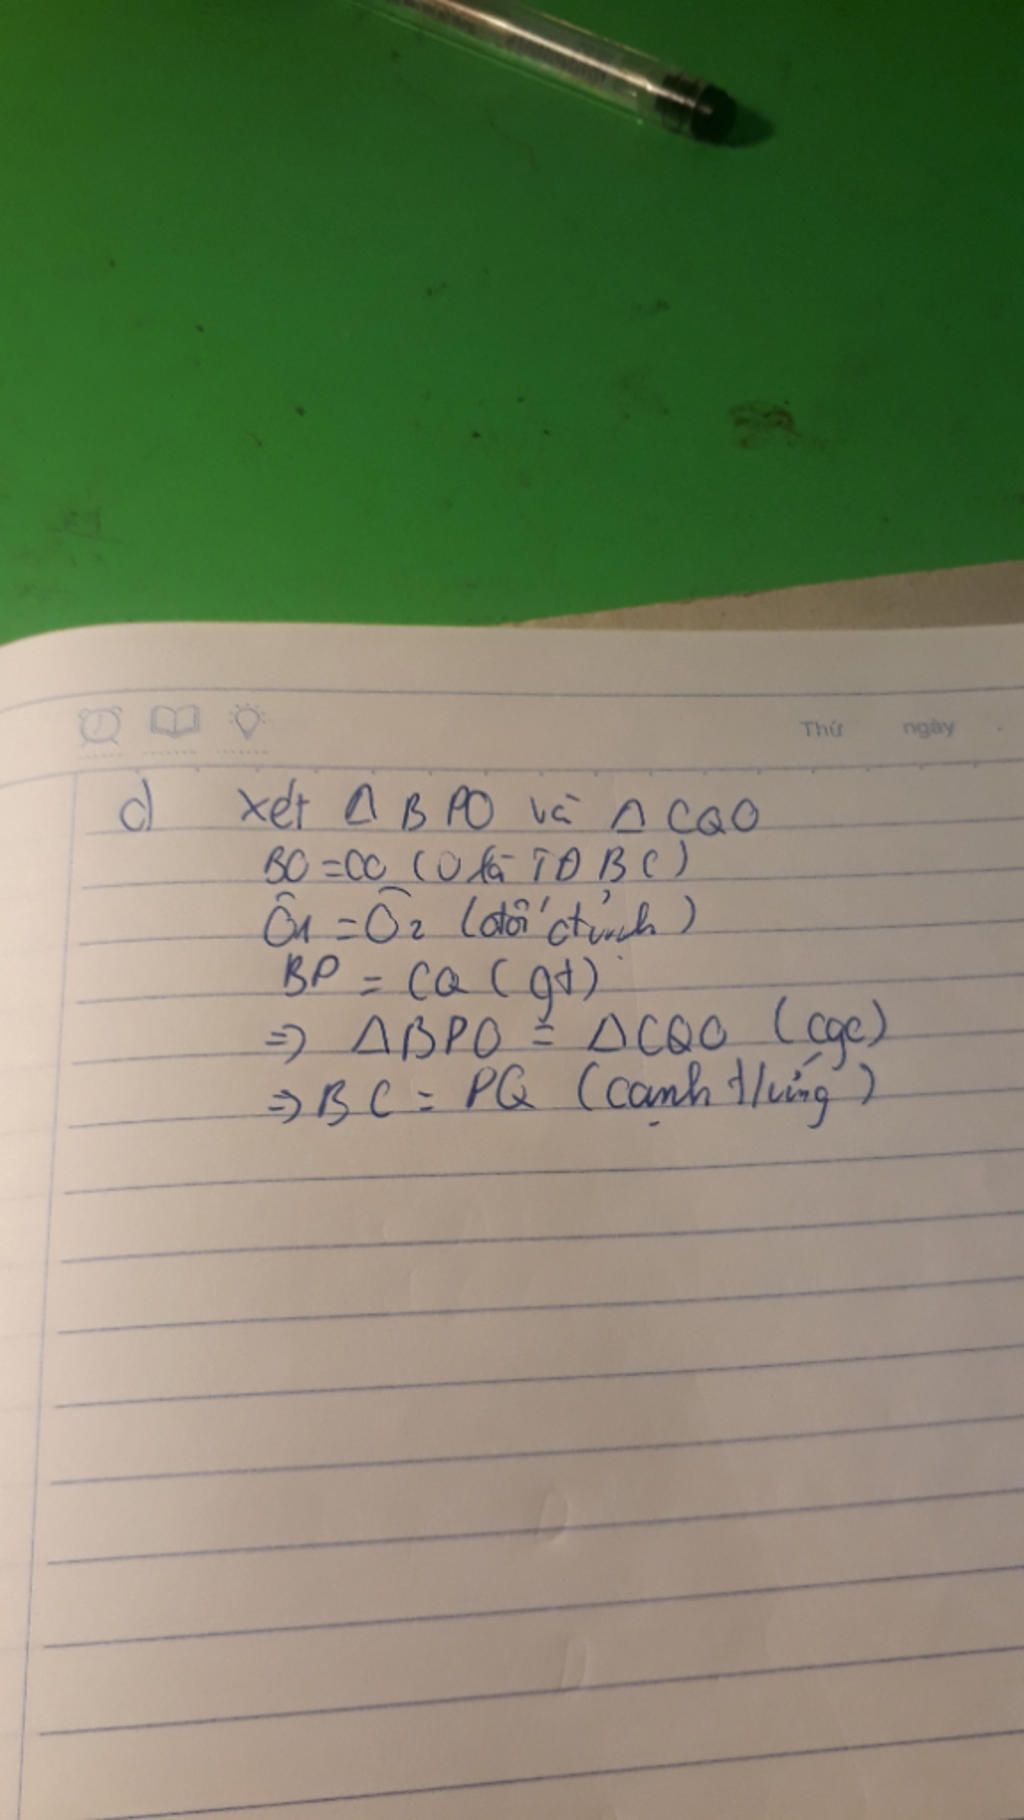 Thứ ngày
d) Xét Δ BPO và Δ CQO
BO = OC (O là TĐ BC)
Ô1 = Ô2 (đối đỉnh)
BP = CQ (gt)
=> ΔBPO = ΔCQO (cgc)
=> BC = PQ (cạnh t/ứng)